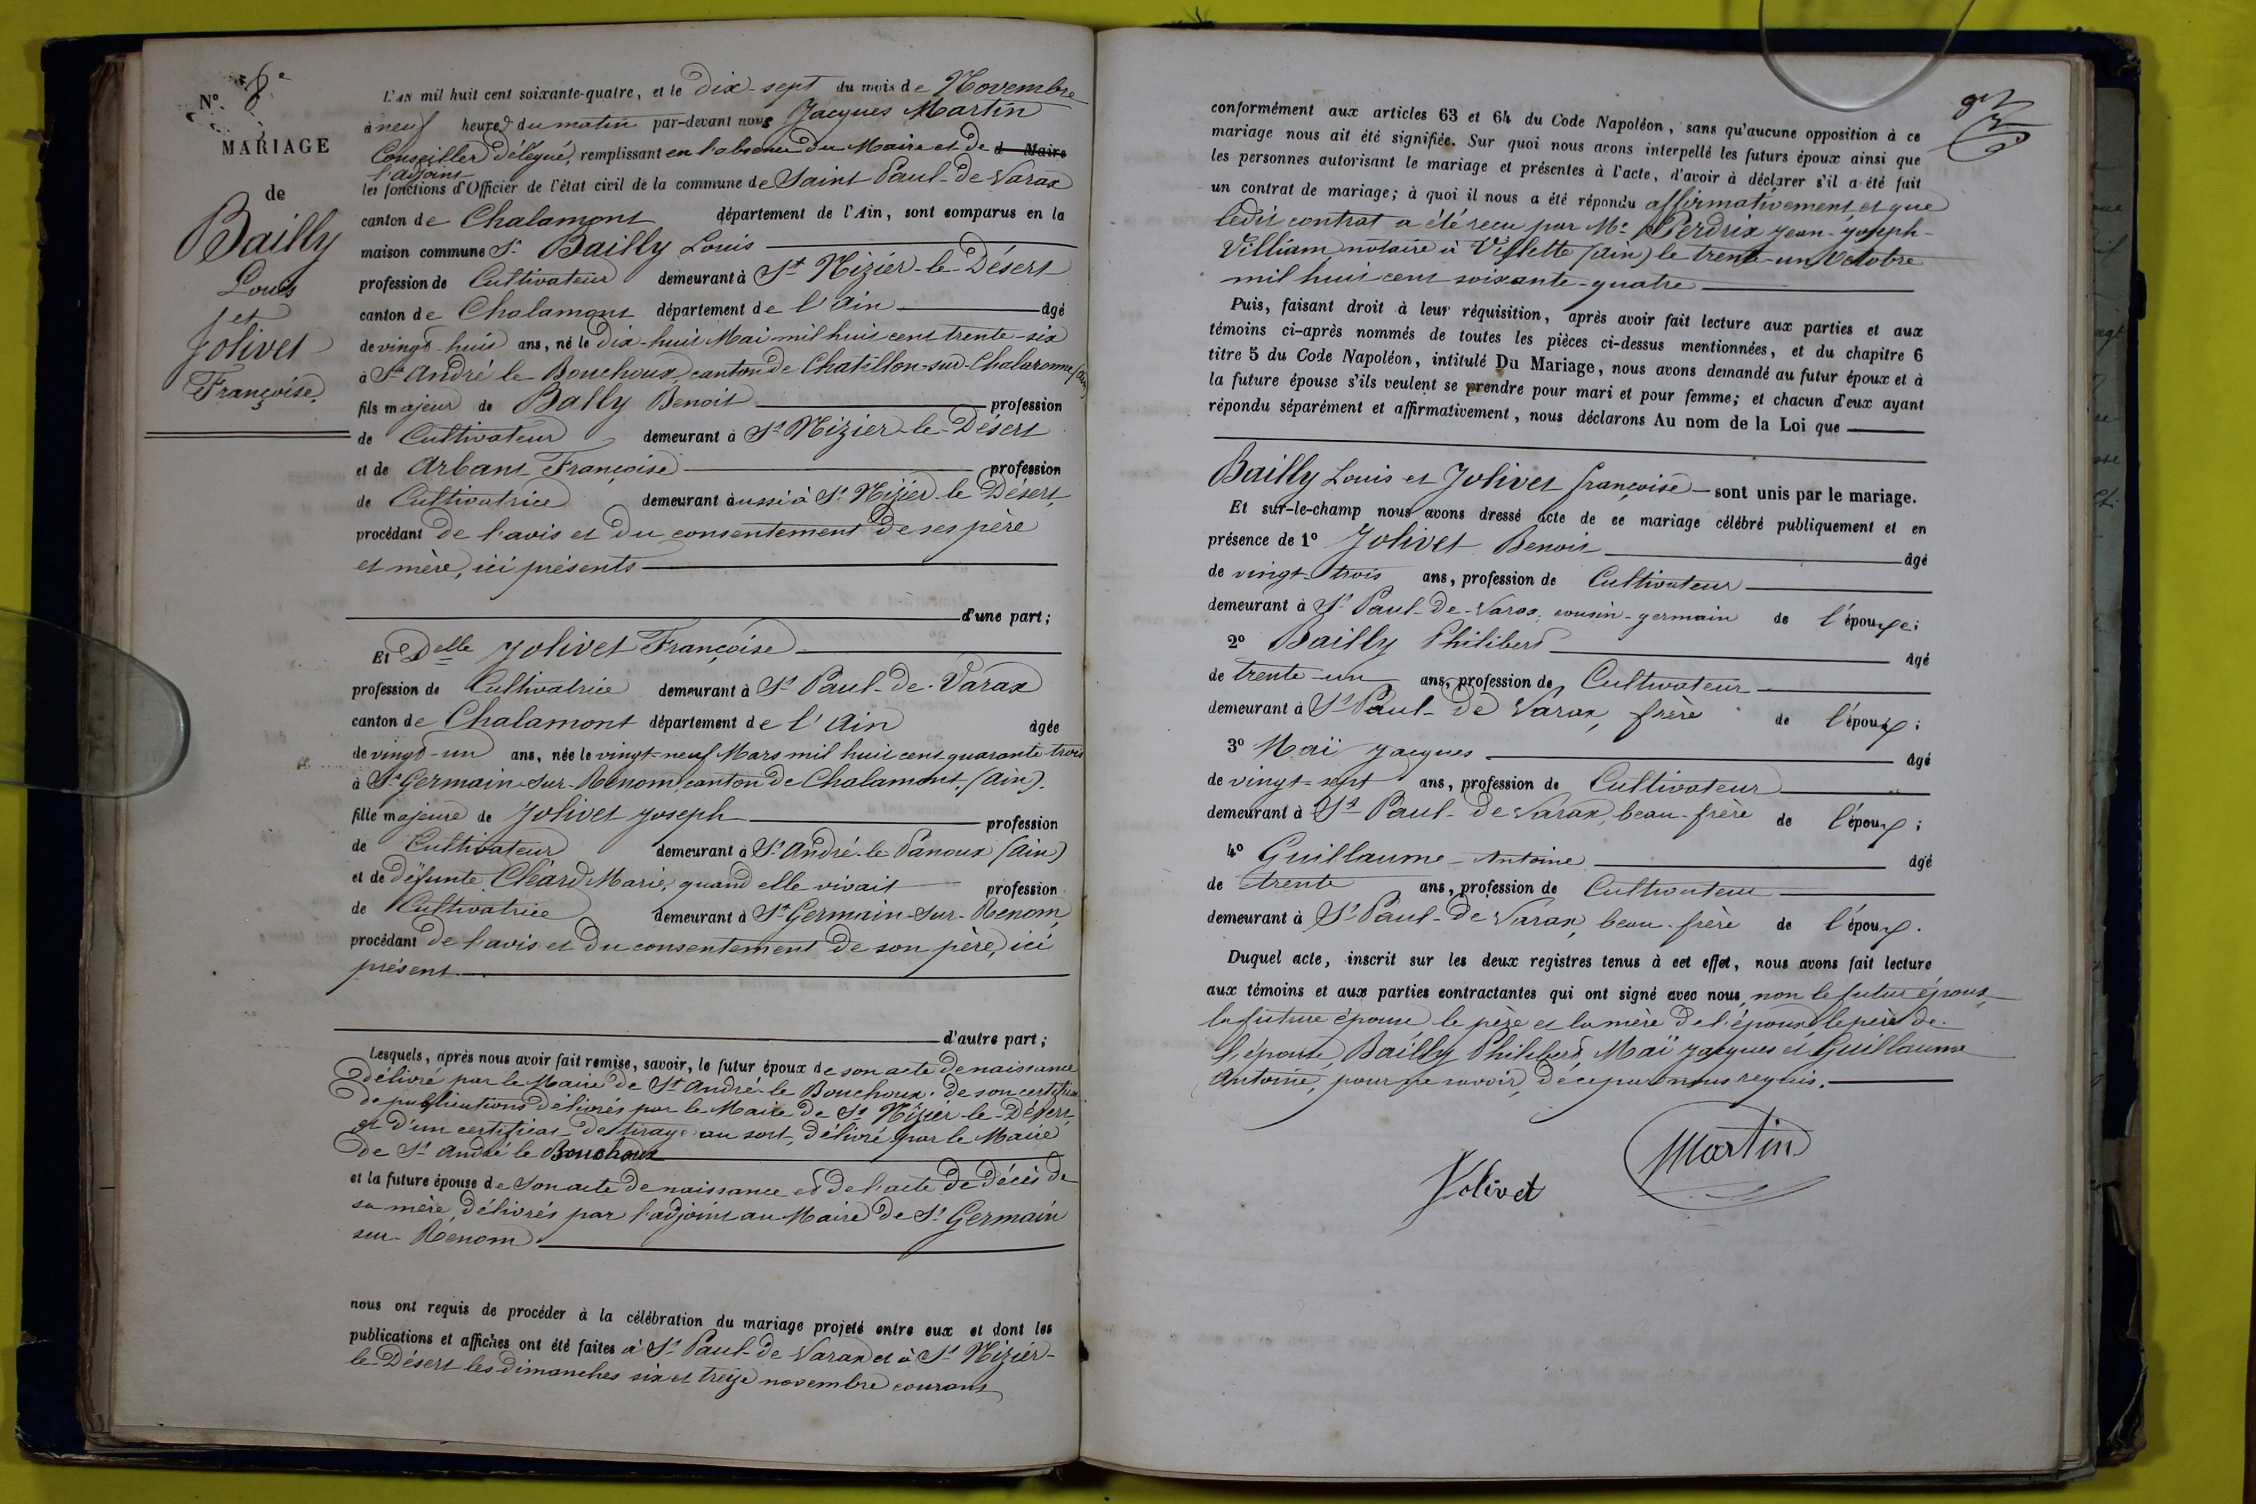 N.º 8e
MARIAGE
de
Bailly
Louis
et
Jolivet
Françoise
L'AN mil huit cent soixante-quatre, et le dix-sept du mois de Novembre
à neuf heures du matin par-devant nous Jacques Martin
Conseiller délégué, remplissant en l'absence du Maire et de d Maire
l'adjoint
les fonctions d'Officier de l'état civil de la commune de Saint Paul-de-Varax
canton de Chalamont département de l'Ain, sont comparus en la
maison commune Sr Bailly Louis
profession de Cultivateur demeurant à St Nizier-le-Désert
canton de Chalamont département de l'Ain âgé
de vingt-huit ans, né le dix-huit Mai mil huit cent trente-six
à St André le Bouchoux, canton de Chatillon-sur-Chalaronne (Ain)
fils majeur de Bally Benoit profession
de Cultivateur demeurant à St Nizier-le-Désert
et de Arbant Françoise profession
de Cultivatrice demeurant aussi à St Nizier-le Désert,
procédant de l'avis et du consentement de ses père
et mère, ici présents
d'une part;
Et Delle Jolivet Françoise
profession de Cultivatrice demeurant à St Paul-de-Varax
canton de Chalamont département de l'Ain âgée
de vingt-un ans, née le vingt-neuf Mars mil huit cent quarante-trois
à St Germain-sur-Renom, canton de Chalamont, (Ain).
fille majeure de Jolivet Joseph profession
de Cultivateur demeurant à St André-le-Panoux (Ain)
et de défunte Chard Marie, quand elle vivait profession
de Cultivatrice demeurant à St Germain-sur-Renom,
procédant de l'avis et du consentement de son père, ici
présent.
d'autre part;
Lesquels, après nous avoir fait remise, savoir, le futur époux de son acte de naissance
délivré par le Maire de St André-le Bouchoux, de son certificat
de publications délivrés par le Maire de St Nizier-le-Désert,
et d'un certificat de tirage au sort, délivré par le Maire
de St André le Bouchoux
et la future épouse de son acte de naissance et de l'acte de décès de
sa mère, délivrés par l'adjoint au Maire de St Germain
sur-Renom
nous ont requis de procéder à la célébration du mariage projeté entre eux et dont les
publications et affiches ont été faites à St Paul-de Varax et à St Nizier-
le-Désert les dimanches six et treize novembre courant
conformément aux articles 63 et 64 du Code Napoléon, sans qu'aucune opposition à ce
mariage nous ait été signifiée. Sur quoi nous avons interpellé les futurs époux ainsi que
les personnes autorisant le mariage et présentes à l'acte, d'avoir à déclarer s'il a été fait
un contrat de mariage; à quoi il nous a été répondu affirmativement, et que
ledit contrat a été reçu par Me Perdrix Jean-Joseph-
Villiam notaire à Villette (Ain) le trente-un Octobre
mil huit cent soixante-quatre
Puis, faisant droit à leur réquisition, après avoir fait lecture aux parties et aux
témoins ci-après nommés de toutes les pièces ci-dessus mentionnées, et du chapitre 6
titre 5 du Code Napoléon, intitulé Du Mariage, nous avons demandé au futur époux et à
la future épouse s'ils veulent se prendre pour mari et pour femme; et chacun d'eux ayant
répondu séparément et affirmativement, nous déclarons Au nom de la Loi que
Bailly Louis et Jolivet françoise sont unis par le mariage.
Et sur-le-champ nous avons dressé acte de ce mariage célébré publiquement et en
présence de 1º Jolivet Benoit âgé
de vingt-trois ans, profession de Cultivateur
demeurant à St Paul-de-Varax, cousin-germain de l'épouse;
2º Bailly Philibert âgé
de trente-un ans, profession de Cultivateur
demeurant à St Paul-de Varax, frère de l'époux;
3º Maï Jacques âgé
de vingt-sept ans, profession de Cultivateur
demeurant à St Paul-de Varax, beau-frère de l'époux;
4º Guillaume Antoine âgé
de trente ans, profession de Cultivateur
demeurant à St Paul-de Varax, beau-frère de l'époux.
Duquel acte, inscrit sur les deux registres tenus à cet effet, nous avons fait lecture
aux témoins et aux parties contractantes qui ont signé avec nous, non le futur époux,
la future épouse, le père et la mère de l'époux, le père de
l'épouse, Bailly Philibert, Maï Jacques et Guillaume
Antoine, pour ne savoir, de ce par nous requis.
Jolivet
Martin